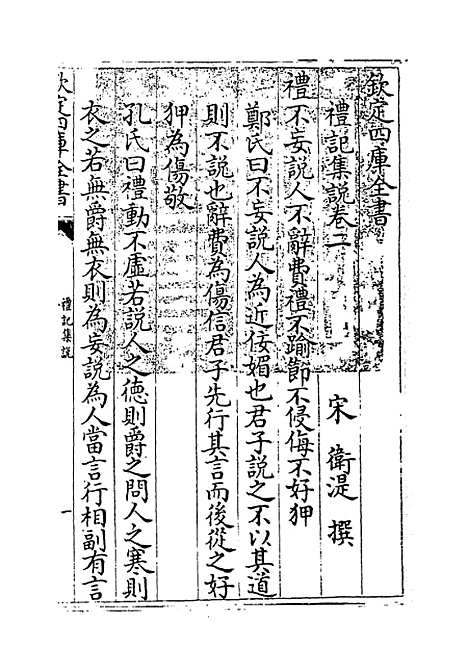 欽定四庫全書
禮記集說卷二
宋 衛湜 撰
禮不妄說人不辭費禮不踰節不侵侮不好狎
鄭氏曰不妄說人為近佞媚也君子說之不以其道
則不說也辭費為傷信君子先行其言而後從之好
狎為傷敬
孔氏曰禮動不虛若說人之德則爵之問人之寒則
衣之若無爵無衣則為妄說為人當言行相副有言
欽定四庫全書
禮記集說
一